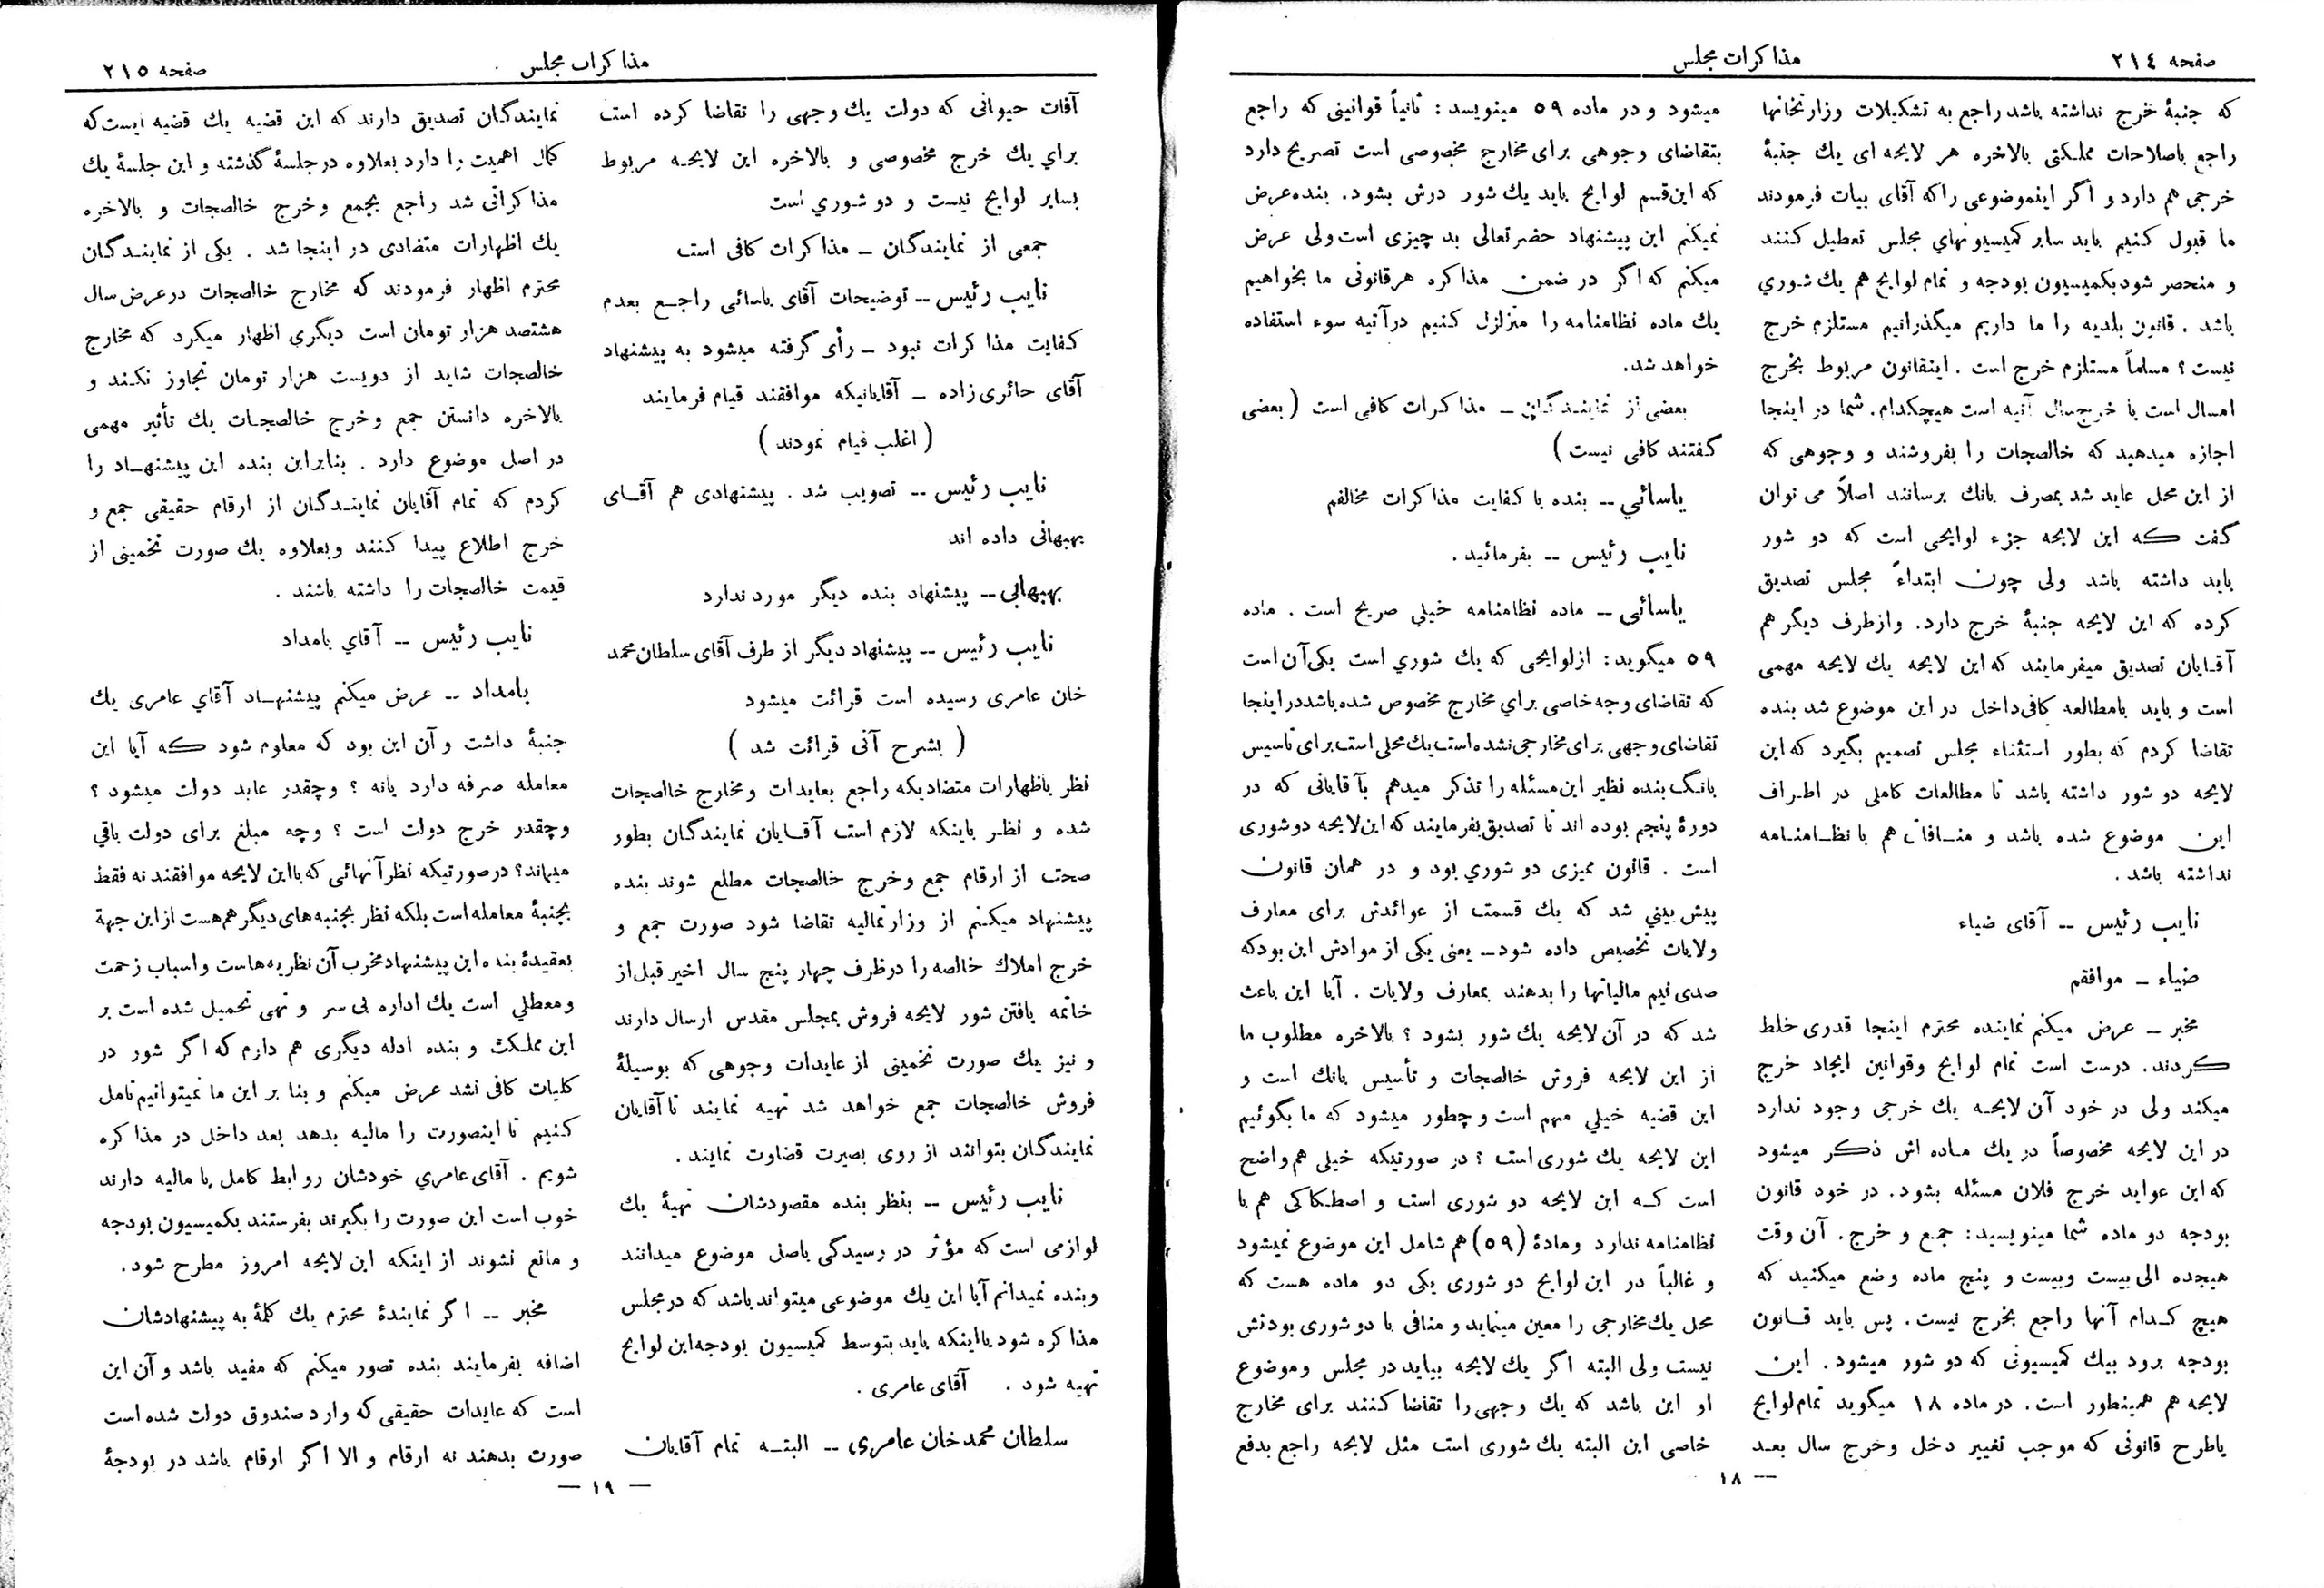 صفحه ٢١٤
مذاکرات مجلس
که جنبهٔ خرج نداشته باشد راجع به تشکیلات وزارتخانها
راجع باصلاحات مملکتی بالاخره هر لایحه ای یك جنبهٔ
خرجی هم دارد و اگر اینموضوعی را که آقای بیات فرمودند
ما قبول کنیم باید سایر کمیسیونهای مجلس تعطیل کنند
و منحصر شود بکمیسیون بودجه و تمام لوایح هم یك شوري
باشد . قانون بلدیه را ما داریم میگذرانیم مستلزم خرج
نیست ؟ مسلماً مستلزم خرج است . اینقانون مربوط بخرج
امسال است یا خرج سال آتیه است هیچکدام. شما در اینجا
اجازه میدهید که خالصجات را بفروشند و وجوهی که
از این محل عاید شد بمصرف بانك برسانند اصلاً می توان
گفت که این لایحه جزء لوایحی است که دو شور
باید داشته باشد ولی چون ابتداءً مجلس تصدیق
کرده که این لایحه جنبهٔ خرج دارد. وازطرف دیگر هم
آقایان تصدیق میفرمایند که این لایحه یك لایحه مهمی
است و باید بامطالعه کافی داخل در این موضوع شد بنده
تقاضا کردم که بطور استثناء مجلس تصمیم بگیرد که این
لایحه دو شور داشته باشد تا مطالعات کاملی در اطراف
این موضوع شده باشد و منافات هم با نظامنامه
نداشته باشد .
نایب رئیس -- آقای ضیاء
ضیاء - موافقم
مخبر - عرض میکنم نماینده محترم اینجا قدری خلط
کردند. درست است تمام لوایح وقوانین ایجاد خرج
میکند ولی در خود آن لایحه یك خرجی وجود ندارد
در این لایحه مخصوصاً در یك ماده اش ذکر میشود
که این عواید خرج فلان مسئله بشود. در خود قانون
بودجه دو ماده شما مینویسید: جمع و خرج. آن وقت
هیجده الی بیست وبیست و پنج ماده وضع میکنید که
هیچ کدام آنها راجع بخرج نیست. پس باید قانون
بودجه برود بیك کمیسیونی که دو شور میشود. این
لایحه هم همینطور است. در ماده ١٨ میگوید تمام لوایح
یاطرح قانونی که موجب تغییر دخل وخرج سال بعد
میشود و در ماده ٥٩ مینویسد: ثانیاً قوانینی که راجع
بتقاضای وجوهی برای مخارج مخصوصی است تصریح دارد
که این قسم لوایح باید یك شور درش بشود. بنده عرض
نمیکنم این پیشنهاد حضرتعالی بد چیزی است ولی عرض
میکنم که اگر در ضمن مذاکره هر قانونی ما بخواهیم
یك ماده نظامنامه را متزلزل کنیم درآتیه سوء استفاده
خواهد شد.
بعضی از نمایندگان - مذاکرات کافی است ( بعضی
گفتند کافی نیست )
یاسائي -- بنده با کفایت مذاکرات مخالفم
نایب رئیس -- بفرمائید .
یاسائی -- ماده نظامنامه خیلي صریح است . ماده
٥٩ میگوید: ازلوایحی که یك شوري است یکی آن است
که تقاضای وجه خاصی براي مخارج مخصوص شده باشد در اینجا
تقاضای وجهی برای مخارجی نشده است یك محلی است برای تاسیس
بانك بنده نظیر این مسئله را تذکر میدهم بآقایانی که در
دورهٔ پنجم بوده اند تا تصدیق بفرمایند که این لایحه دو شوری
است . قانون ممیزی دو شوري بود و در همان قانون
پیش بیني شد که یك قسمت از عوائدش برای معارف
ولایات تخصیص داده شود- یعنی یکی از موادش این بود که
صدی نیم مالیاتها را بدهند بمعارف ولایات . آیا این باعث
شد که در آن لایحه یك شور بشود ؟ بالاخره مطلوب ما
از این لایحه فروش خالصجات و تأسیس بانك است و
این قضیه خیلي مهم است و چطور میشود که ما بگوئیم
این لایحه یك شوری است ؟ در صورتیکه خیلی هم واضح
است که این لایحه دو شوری است و اصطکاکی هم با
نظامنامه ندارد ومادهٔ (٥٩) هم شامل این موضوع نمیشود
و غالباً در این لوایح دو شوری یکی دو ماده هست که
محل یك مخارجی را معین مینماید و منافی با دو شوری بودنش
نیست ولی البته اگر یك لایحه بیاید در مجلس وموضوع
او این باشد که یك وجهی را تقاضا کنند برای مخارج
خاصی این البته یك شوری است مثل لایحه راجع بدفع
— ١٨
مذاکرات مجلس
صفحه ٢١٥
آفات حیوانی که دولت یك وجهی را تقاضا کرده است
براي یك خرج مخصوصی و بالاخره این لایحه مربوط
بسایر لوایح نیست و دو شوري است
جمعی از نمایندگان - مذاکرات کافی است
نایب رئیس -- توضیحات آقای یاسائی راجع بعدم
کفایت مذاکرات نبود - رأی گرفته میشود به پیشنهاد
آقای حائری زاده - آقایانیکه موافقند قیام فرمایند
( اغلب قیام نمودند )
نایب رئیس -- تصویب شد . پیشنهادی هم آقای
بهبهانی داده اند
بهبهانی -- پیشنهاد بنده دیگر مورد ندارد
نایب رئیس -- پیشنهاد دیگر از طرف آقای سلطان محمد
خان عامری رسیده است قرائت میشود
( بشرح آتی قرائت شد )
نظر باظهارات متضادیکه راجع بعایدات ومخارج خالصجات
شده و نظر باینکه لازم است آقایان نمایندگان بطور
صحت از ارقام جمع وخرج خالصجات مطلع شوند بنده
پیشنهاد میکنم از وزارتمالیه تقاضا شود صورت جمع و
خرج املاك خالصه را درظرف چهار پنج سال اخیر قبل از
خاتمه یافتن شور لایحه فروش بمجلس مقدس ارسال دارند
و نیز یك صورت تخمینی از عایدات وجوهی که بوسیلهٔ
فروش خالصجات جمع خواهد شد تهیه نمایند تا آقایان
نمایندگان بتوانند از روی بصیرت قضاوت نمایند .
نایب رئیس -- بنظر بنده مقصودشان تهیهٔ یك
لوازمی است که مؤثر در رسیدگی باصل موضوع میدانند
وبنده نمیدانم آیا این یك موضوعی میتواند باشد که در مجلس
مذاکره شود یااینکه باید بتوسط کمیسیون بودجه این لوایح
تهیه شود . آقای عامری .
سلطان محمدخان عامری -- البته تمام آقایان
نمایندگان تصدیق دارند که این قضیه یك قضیه ایست که
کمال اهمیت را دارد بعلاوه در جلسهٔ گذشته و این جلسهٔ یك
مذاکراتی شد راجع بجمع وخرج خالصجات و بالاخره
یك اظهارات متضادی در اینجا شد . یکی از نمایندگان
محترم اظهار فرمودند که مخارج خالصجات در عرض سال
هشتصد هزار تومان است دیگری اظهار میکرد که مخارج
خالصجات شاید از دویست هزار تومان تجاوز نکند و
بالاخره دانستن جمع وخرج خالصجات یك تأثیر مهمی
در اصل موضوع دارد . بنابراین بنده این پیشنهاد را
کردم که تمام آقایان نمایندگان از ارقام حقیقی جمع و
خرج اطلاع پیدا کنند وبعلاوه یك صورت تخمینی از
قیمت خالصجات را داشته باشند .
نایب رئیس -- آقاي بامداد
بامداد -- عرض میکنم پیشنهاد آقاي عامری یك
جنبهٔ داشت و آن این بود که معلوم شود که آیا این
معامله صرفه دارد یانه ؟ وچقدر عاید دولت میشود ؟
وچقدر خرج دولت است ؟ وچه مبلغ برای دولت باقي
میماند؟ درصورتیکه نظر آنهائی که بااین لایحه موافقند نه فقط
بجنبهٔ معامله است بلکه نظر بجنبه های دیگر هم هست از این جهة
بعقیدهٔ بنده این پیشنهاد مخرب آن نظریه هاست و اسباب زحمت
ومعطلي است یك اداره بی سر و تهی تحمیل شده است بر
این مملکت و بنده ادله دیگری هم دارم که اگر شور در
کلیات کافی نشد عرض میکنم و بنا بر این ما نمیتوانیم تامل
کنیم تا اینصورت را مالیه بدهد بعد داخل در مذاکره
شویم . آقای عامري خودشان روابط کامل با مالیه دارند
خوب است این صورت را بگیرند بفرستند بکمیسیون بودجه
و مانع نشوند از اینکه این لایحه امروز مطرح شود.
مخبر -- اگر نمایندهٔ محترم یك کلمهٔ به پیشنهادشان
اضافه بفرمایند بنده تصور میکنم که مفید باشد و آن این
است که عایدات حقیقی که وارد صندوق دولت شده است
صورت بدهند نه ارقام و الا اگر ارقام باشد در بودجهٔ
— ١٩ —